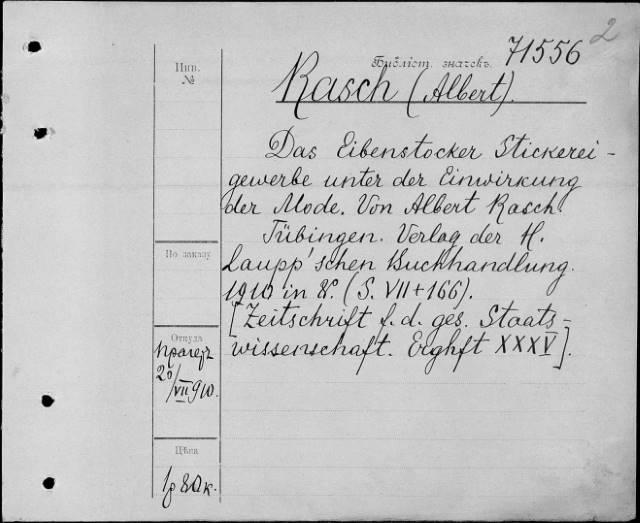 2
Библіот. значекъ. 71556
Инв.
№
Rasch (Albert).
Das Eibenstocker Stickerei-
gewerbe unter der Einwirkung
der Mode. Von Albert Rasch.
Tübingen. Verlag der H.
Laupp'schen Buchhandlung.
1910 in 8º. (S. VII + 166).
[Zeitschrift f. d. ges. Staats-
wissenschaft. Erghft XXXV].
По заказу
Откуда
Прагеръ
20/VII 910.
Цѣна
1р 80к.